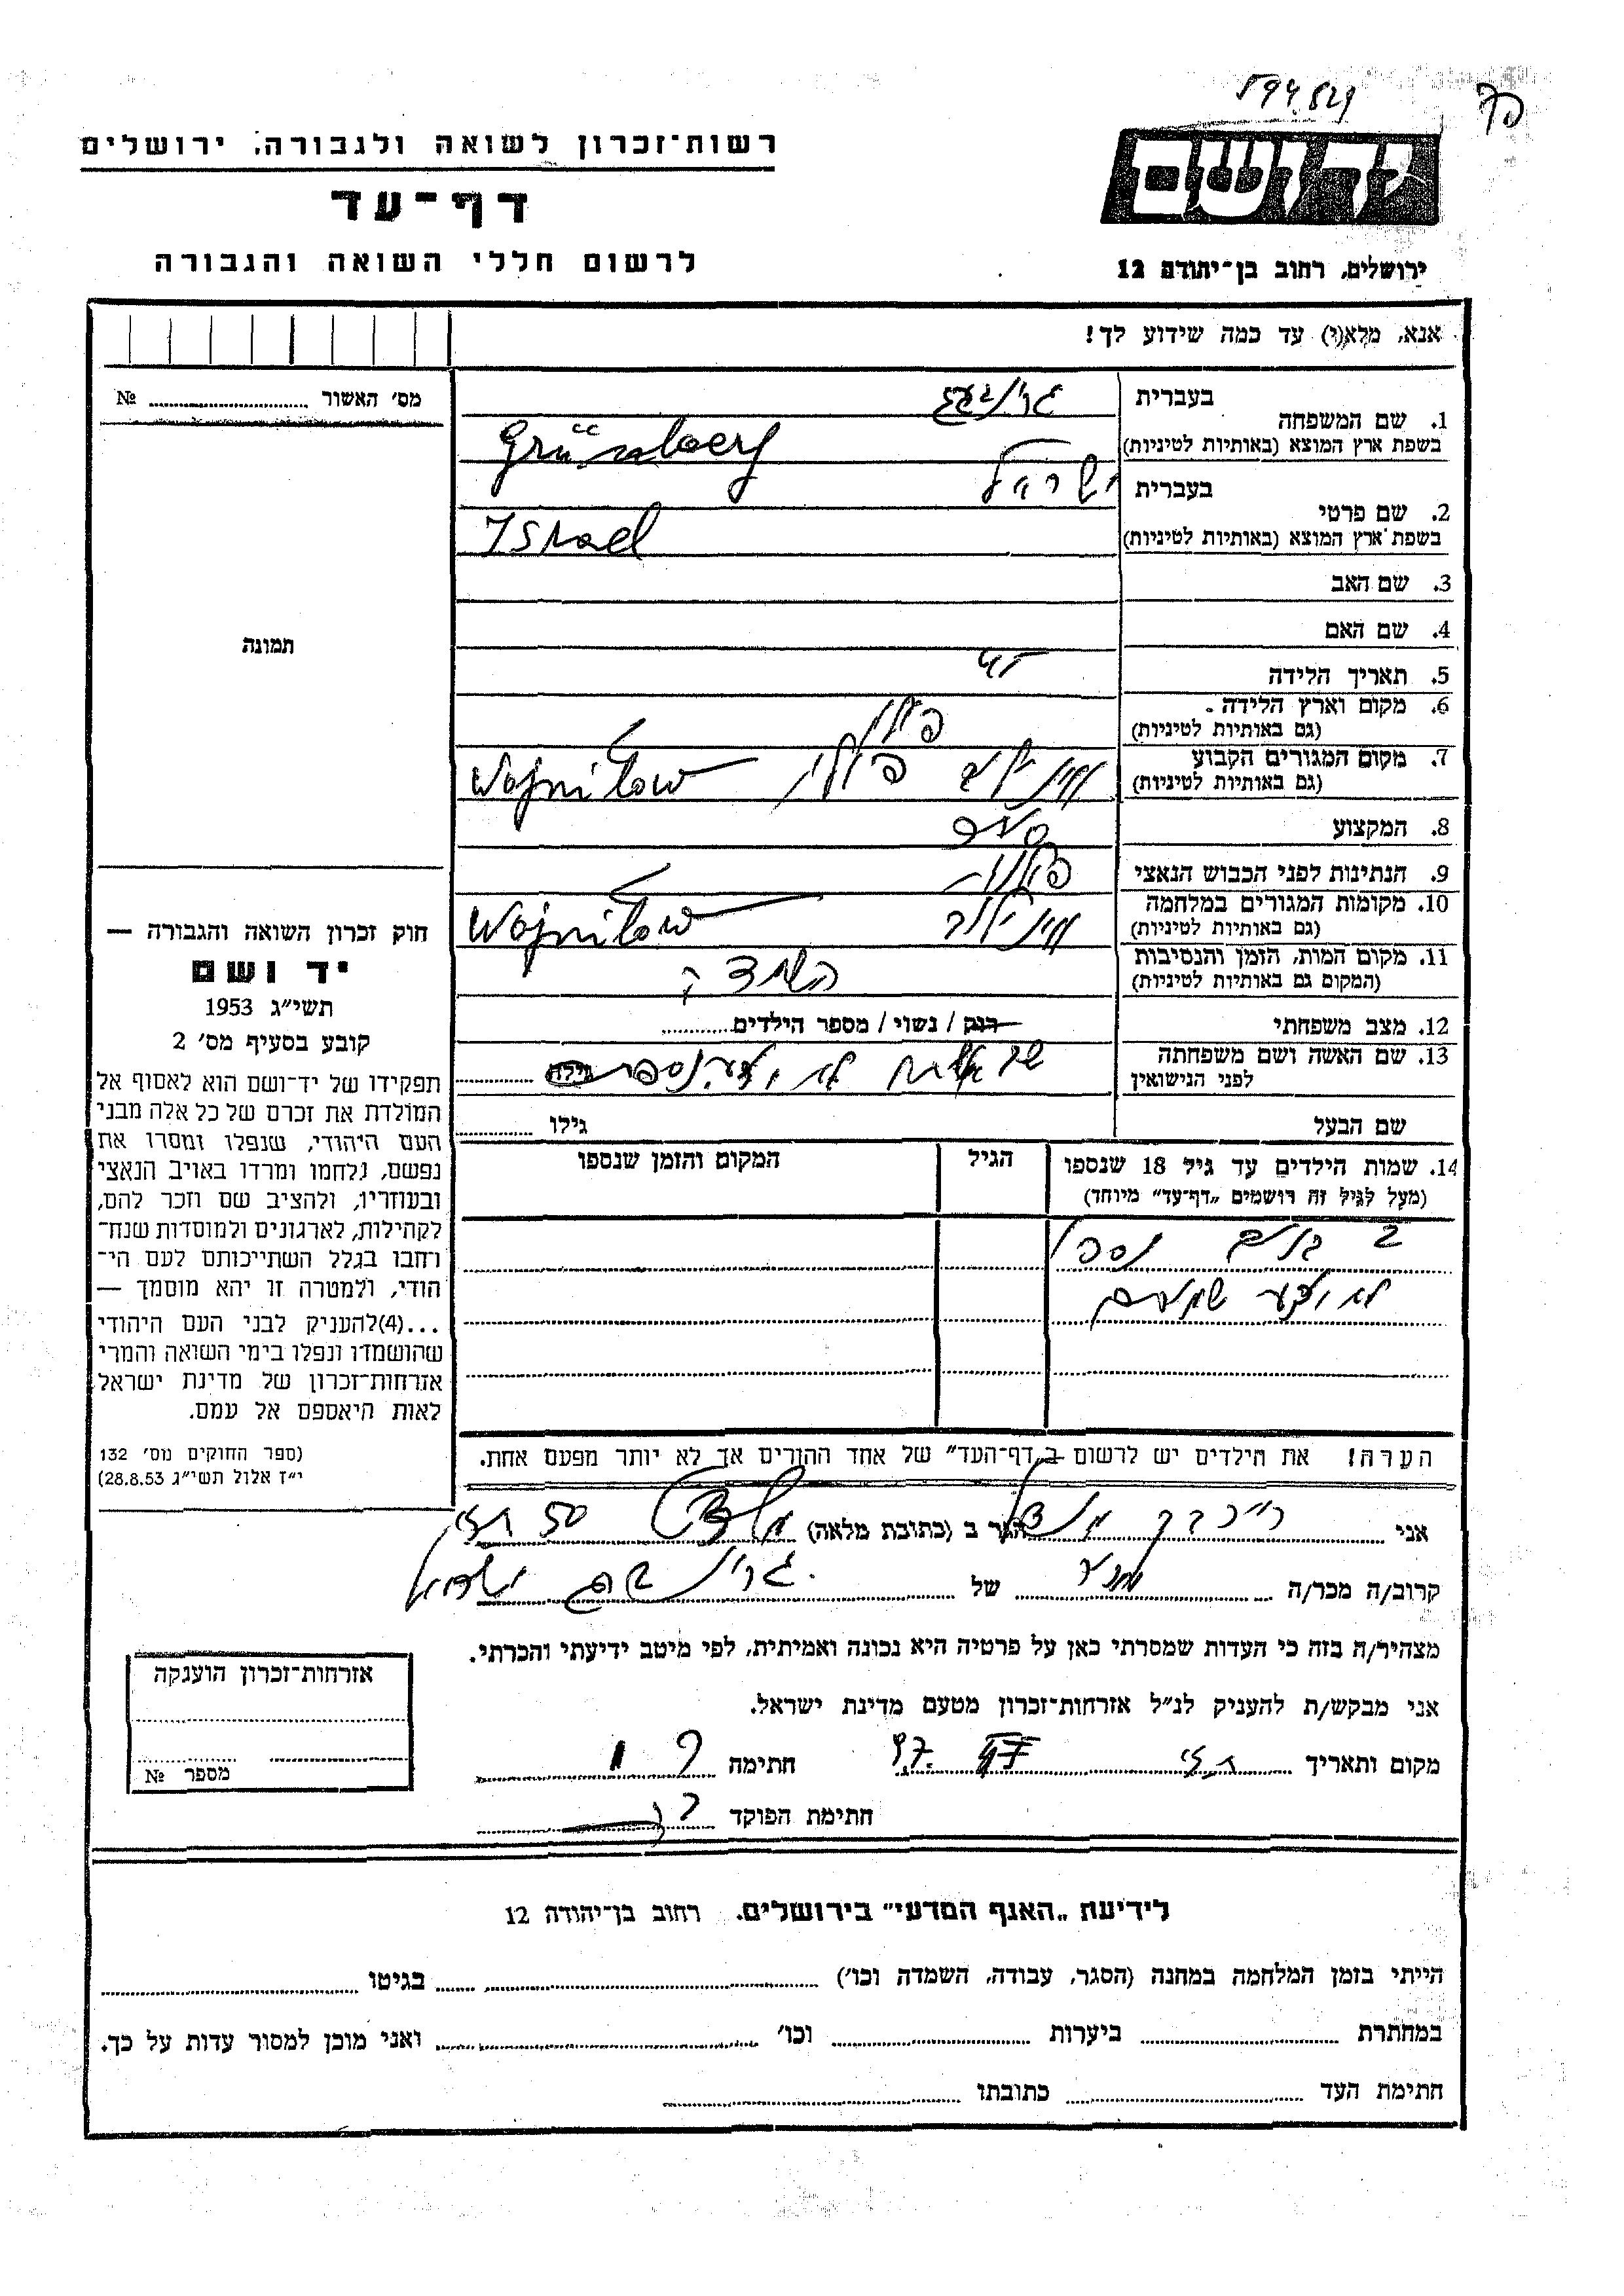 594529
דף
רשות־זכרון לשואה ולגבורה, ירושלים
דף־עד
לרשום חללי השואה והגבורה
יד ושם
ירושלים, רחוב בן־יהודה 12
אנא, מלא(י) עד כמה שידוע לך!
מס׳ האשור № ........
תמונה
1. שם המשפחה
בעברית
בשפת ארץ המוצא (באותיות לטיניות)
Grünsberg
2. שם פרטי
בעברית ישראל
בשפת ארץ המוצא (באותיות לטיניות)
Israel
3. שם האב
4. שם האם
5. תאריך הלידה
6. מקום וארץ הלידה
(גם באותיות לטיניות)
פולין
7. מקום המגורים הקבוע
(גם באותיות לטיניות)
פולין Wojniłow
8. המקצוע
9. הנתינות לפני הכבוש הנאצי
פולנית
10. מקומות המגורים במלחמה
(גם באותיות לטיניות)
Wojniłow
11. מקום המות, הזמן והנסיבות
(המקום גם באותיות לטיניות)
השמדה
12. מצב משפחתי רוק / נשוי / מספר הילדים........
13. שם האשה ושם משפחתה
לפני הנישואין
שם האשה לא ידוע נספתה
גילה ........
שם הבעל גילו ........
14. שמות הילדים עד גיל 18 שנספו
(מעל לגיל זה רושמים „דף־עד״ מיוחד)
הגיל
המקום והזמן שנספו
2 בנים נספו
לא ידוע שמותם
הערה! את הילדים יש לרשום ב„דף־העד״ של אחד ההורים אך לא יותר מפעם אחת.
חוק זכרון השואה והגבורה —
יד ושם
תשי״ג 1953
קובע בסעיף מס׳ 2
תפקידו של יד־ושם הוא לאסוף אל
המולדת את זכרם של כל אלה מבני
העם היהודי, שנפלו ומסרו את
נפשם, נלחמו ומרדו באויב הנאצי
ובעוזריו, ולהציב שם וזכר להם,
לקהילות, לארגונים ולמוסדות שנח־
רחבו בגלל השתייכותם לעם הי־
הודי, ולמטרה זו יהא מוסמך —
...(4)להעניק לבני העם היהודי
שהושמדו ונפלו בימי השואה והמרי
אזרחות־זכרון של מדינת ישראל
לאות היאספם אל עמם.
(ספר החוקים מס׳ 132
י״ז אלול תשי״ג 28.8.53)
אני ........ הגר ב (כתובת מלאה) ........ 50
קרוב/ה מכר/ה ........ של גרינברג ישראל
מצהיר/ה בזה כי העדות שמסרתי כאן על פרטיה היא נכונה ואמיתית, לפי מיטב ידיעתי והכרתי.
אני מבקש/ת להעניק לנ״ל אזרחות־זכרון מטעם מדינת ישראל.
מקום ותאריך ........ חתימה ........
חתימת הפוקד ........
אזרחות־זכרון הוענקה
מספר №
לידיעת „האגף המדעי״ בירושלים. רחוב בן־יהודה 12
הייתי בזמן המלחמה במחנה (הסגר, עבודה, השמדה וכו׳) ........ בגיטו ........
במחתרת ........ ביערות ........ וכו׳ ........ ואני מוכן למסור עדות על כך.
חתימת העד ........ כתובתו ........